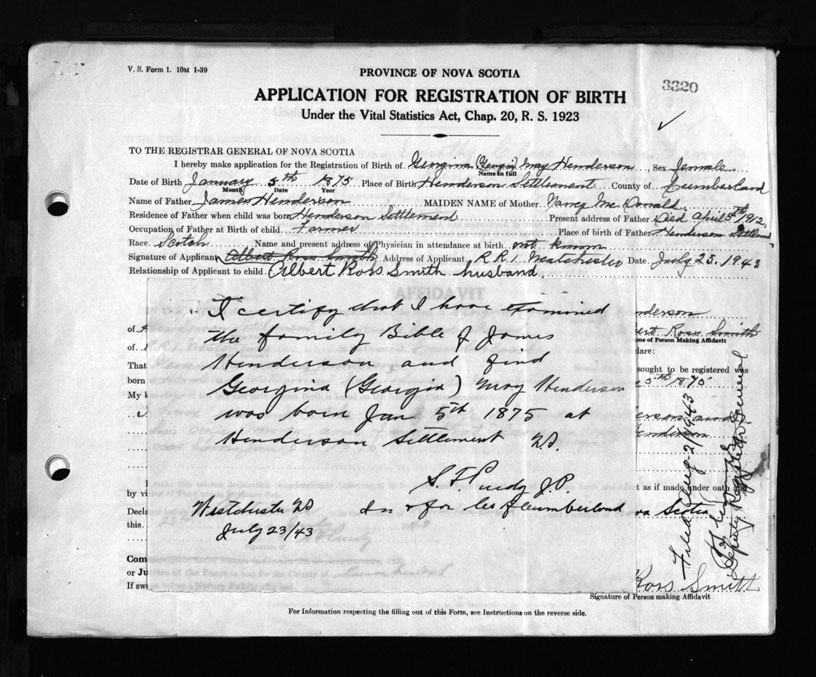 V. S. Form 1. 10M 1-39
PROVINCE OF NOVA SCOTIA
3320
APPLICATION FOR REGISTRATION OF BIRTH
Under the Vital Statistics Act, Chap. 20, R. S. 1923
TO THE REGISTRAR GENERAL OF NOVA SCOTIA
I hereby make application for the Registration of Birth of Georgina (Georgia) May Henderson, Sex female
Name in full
Date of Birth January 5th 1875 Place of Birth Henderson Settlement County of Cumberland
Month Date Year
Name of Father James Henderson MAIDEN NAME of Mother Nancy McDonald
Residence of Father when child was born Henderson Settlement Present address of Father Died April 5th 1912
Occupation of Father at Birth of child Farmer Place of birth of Father Henderson
Race. Scotch Name and present address of Physician in attendance at birth not known
Signature of Applicant Albert Ross Smith Address of Applicant R.R.1. Westchester Date July 23. 1943
Relationship of Applicant to child Albert Ross Smith husband
AFFIDAVIT
I certify that I have examined
the family Bible of James
Henderson and find
Georgina (Georgia) May Henderson
was born Jan 5th 1875 at
Henderson Settlement N.S.
S. F. Purdy J.P.
In & for Co of Cumberland
Westchester NS
July 23/43
enderson
bert Ross Smith
me of Person Making Affidavit
lare:
sought to be registered was
e 5th 1875
of
of
That
born
My k
by vi
Decla
this.
at as if made under oath and
va Scotia
Com
or Ju
If sw
Filed Aug 2/1943
Deputy Registrar General
Ross Smith
Signature of Person making Affidavit
For Information respecting the filling out of this Form, see Instructions on the reverse side.